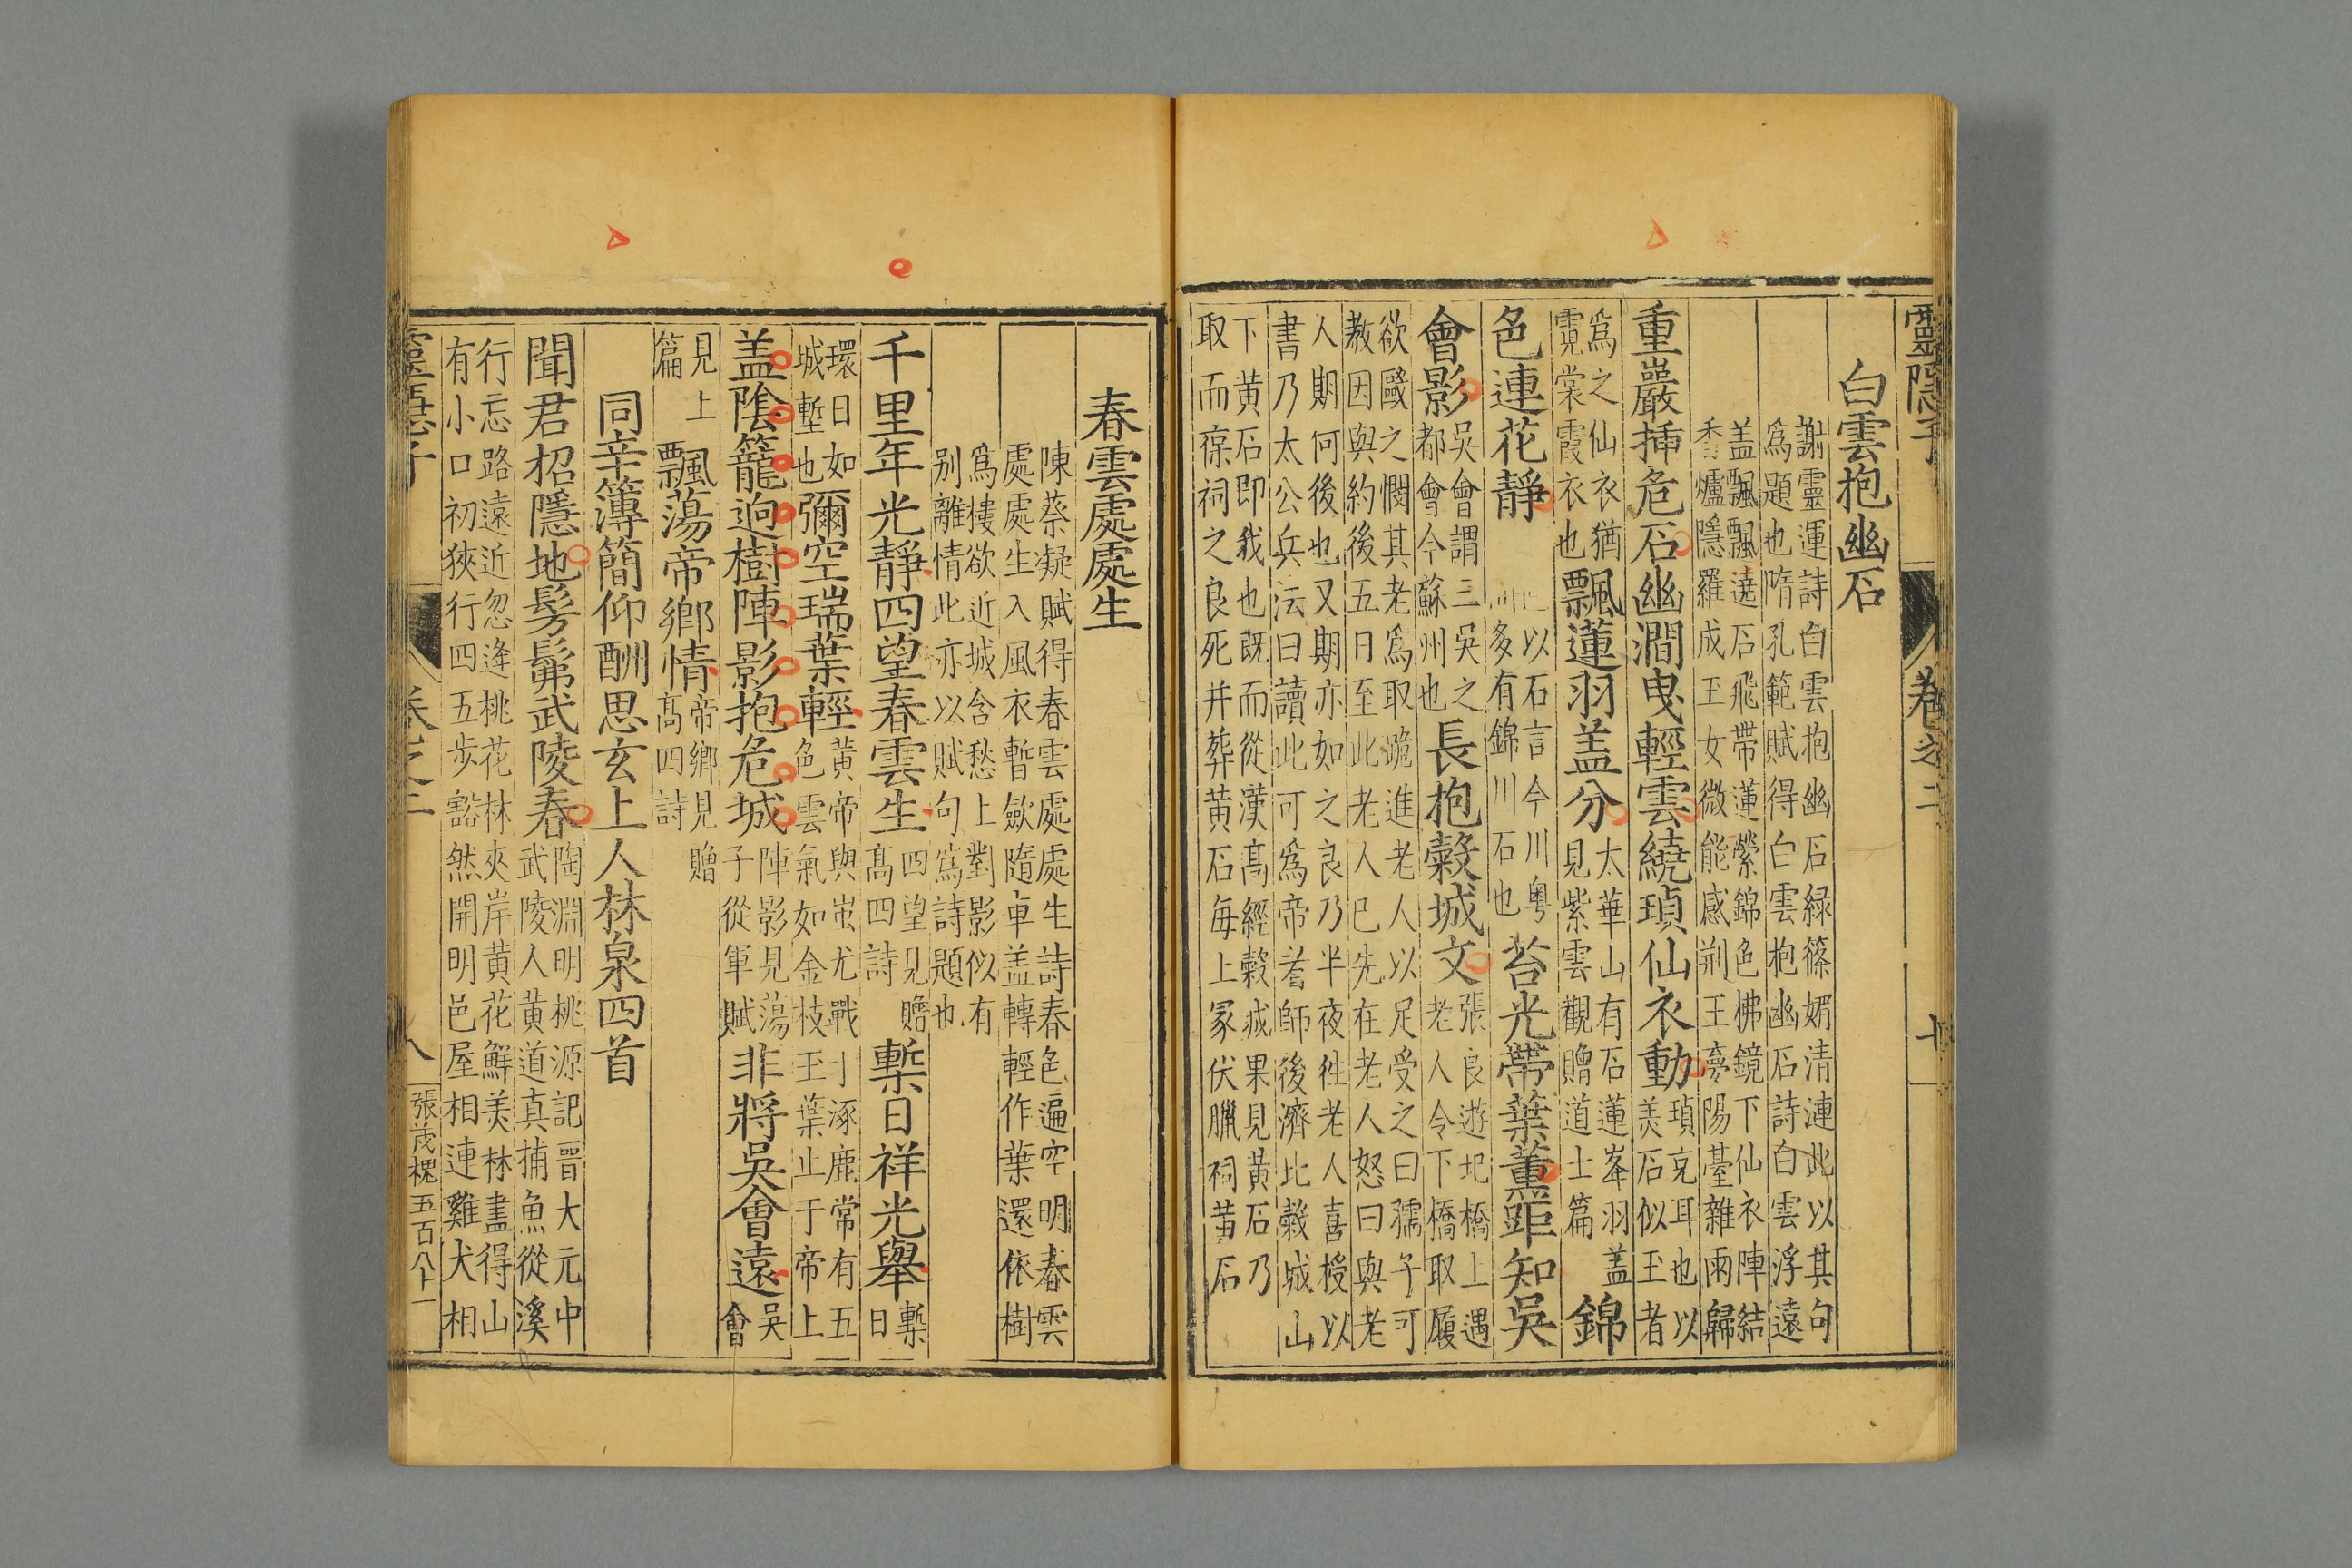 靈隱子
卷之二
白雲抱幽石
謝靈運詩白雲抱幽石緑篠媚清漣此以其句
爲題也隋孔範賦得白雲抱幽石詩白雲浮遠
盖飄飄遶石飛帶蓮縈錦色拂鏡下仙衣陣結
香爐隱羅成玉女微能感荆王夢陽臺雜雨歸
重巖揷危石幽澗曳輕雲繞瑣仙衣動
瑣克耳也以
美石似玉者
爲之仙衣猶
霓裳霞衣也
飄蓮羽盖分
太華山有石蓮峯羽盖
見紫雲觀贈道士篇
錦
色連花靜
以石言今川粤
多有錦川石也
苔光帶葉薰距知吳
會影
吳會謂三吳之
都會今蘇州也
長抱糓城文
張良遊圯橋上遇
老人令下橋取履
欲毆之憫其老爲取跪進老人以足受之曰孺子可
敎因與約後五日至此老人巳先在老人怒曰與老
人期何後也又期亦如之良乃半夜徃老人喜授以
書乃太公兵法曰讀此可爲帝者師後濟北糓城山
下黄石即我也既而從漢高經糓城果見黄石乃
取而葆祠之良死并葬黄石毎上冢伏臘祠黄石
春雲處處生
陳蔡凝賦得春雲處處生詩春色遍空明春雲
處處生入風衣暫斂隨車盖轉輕作葉還依樹
爲樓欲近城含愁上對影似有
别離情此亦以賦句爲詩題也
千里年光靜四望春雲生
四望見贍
高四詩
槧日祥光舉
槧
日
環日如
城塹也
彌空瑞葉輕
黄帝與蚩尤戰于涿鹿常有五
色雲氣如金枝玉葉止于帝上
盖陰籠迥樹陣影抱危城
陣影見蕩
子從軍賦
非將吳會遠
吳
會
見上
篇
飄蕩帝鄉情
帝鄉見贈
高四詩
同辛簿簡仰酬思玄上人林泉四首
聞君招隱地髣髴武陵春
陶淵明桃源記晉大元中
武陵人黄道真捕魚從溪
行忘路遠近忽逢桃花林夾岸黄花鮮美林盡得山
有小口初狹行四五步豁然開明邑屋相連雞犬相
卷之二
八
張茂槐五百八十一